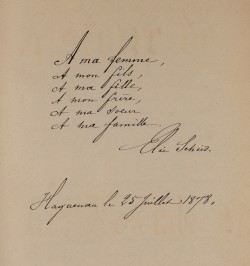 A ma femme,
A mon fils,
A ma fille,
A mon frère,
A ma sœur
A ma famille
Elie Scheid.
Haguenau le 25 Juillet 1878.